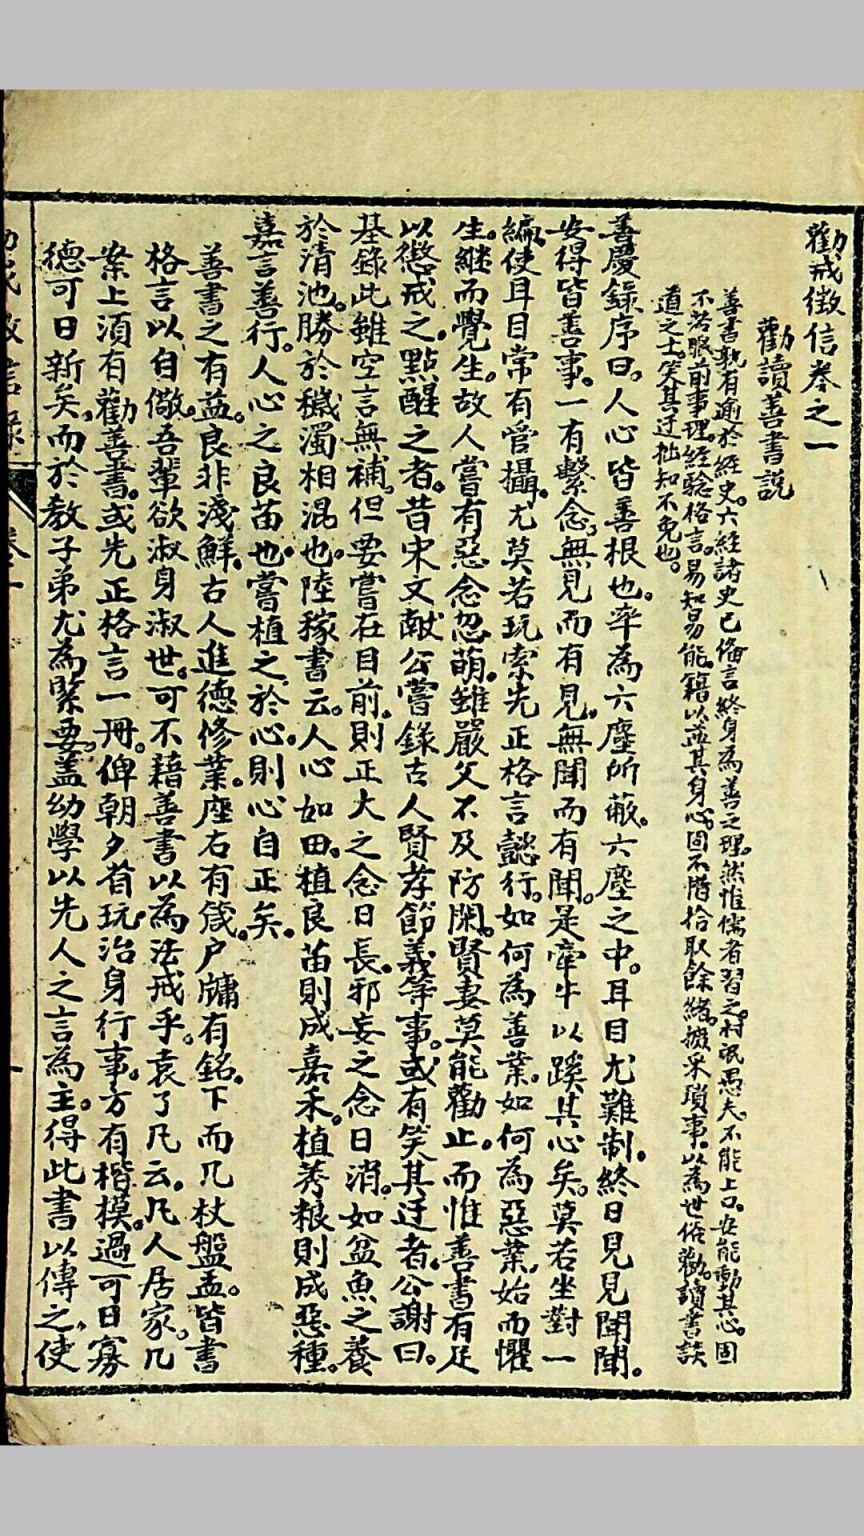 勸戒徵信卷之一
勸讀善書説
善書孰有逾於經史。六經諸史已俻言終身為善之理。然惟儒者習之。村氓愚夫。不能上口。安能動其心。固
不若眼前事理。經騐格言。易知易能。籍以益其身心。固不惜拾取餘緒。掇采瑣事。以為世俗勸。讀書談
道之士。笑其迂拙知不免也。
善慶錄序曰。人心皆善根也。率為六塵所蔽。六塵之中。耳目尤難制。終日見見聞聞。
安得皆善事。一有繫念。無見而有見。無聞而有聞。是牽牛以蹊其心矣。莫若坐對一
編。使耳目常有管攝。尤莫若玩索先正格言懿行。如何為善業。如何為惡業。始而懼
生。継而覺生。故人嘗有惡念忽萌。雖嚴父不及防閑。賢妻莫能勸止。而惟善書有足
以懲戒之。點醒之者。昔宋文猷公嘗錄古人賢孝節義等事。或有笑其迂者。公謝曰。
基錄此雖空言無補。但要嘗在目前。則正大之念日長。邪妄之念日消。如盆魚之養
於清池。勝於穢濁相混也。陸稼書云。人心如田。植良苗則成嘉禾。植莠粮則成惡種。
嘉言善行。人心之良苗也。嘗植之於心。則心自正矣。
善書之有益。良非淺鮮。古人進德修業。座右有箴。户牖有銘。下而几杖盤盂。皆書
格言以自儆。吾輩欲淑身淑世。可不藉善書以為法戒乎。袁了凡云。凡人居家。几
案上須有勸善書。或先正格言一冊。俾朝夕省玩。治身行事。方有楷模。過可日寡
德可日新矣。而於教子弟尤為緊要。蓋幼學以先人之言為主。得此書以傳之。使